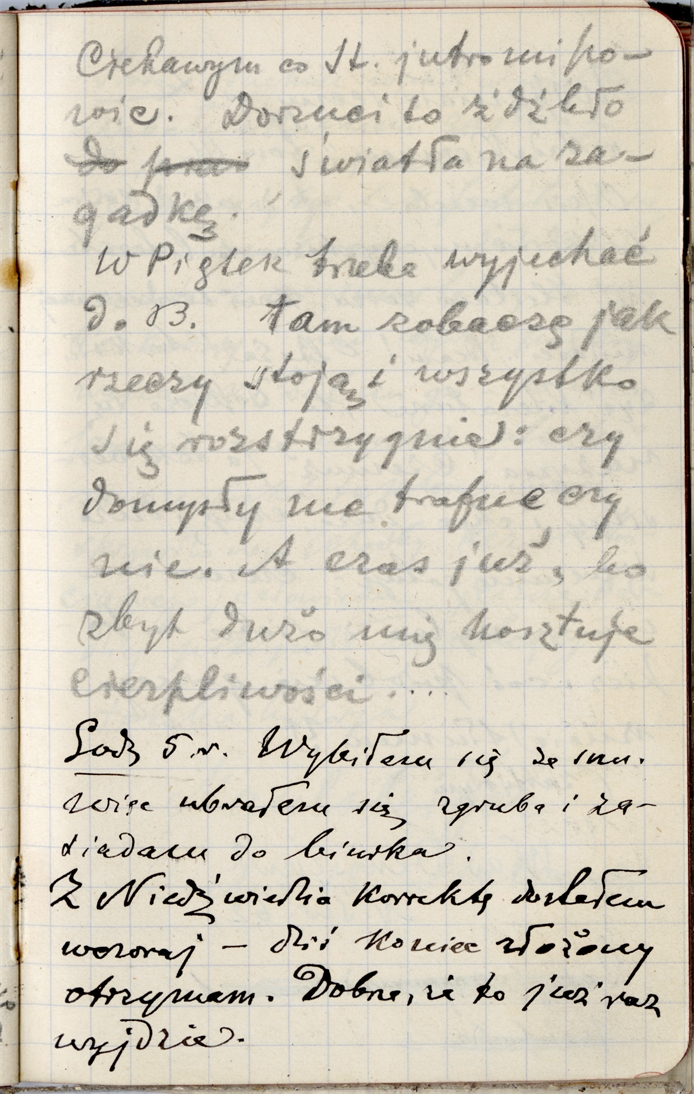 Ciekawym co St. jutro mi po-
wie. Dorzuci to źdźbło
do praw światła na za-
gadkę.
W Piątek trzeba wyjechać
do B. Tam zobaczę jak
rzeczy stoją i wszystko
się rozstrzygnie: czy
domysły me trafne czy
nie. A czas już, bo
zbyt dużo mię kosztuje
cierpliwości....
Godz 5 r. Wybiłem się ze snu.
więc ubrałem się zgruba i za-
siadam do biurka.
Z Niedźwiedzia korrektę dostałem
wczoraj – dziś koniec złożony
otrzymam. Dobrze, że to już raz
wyjdzie.